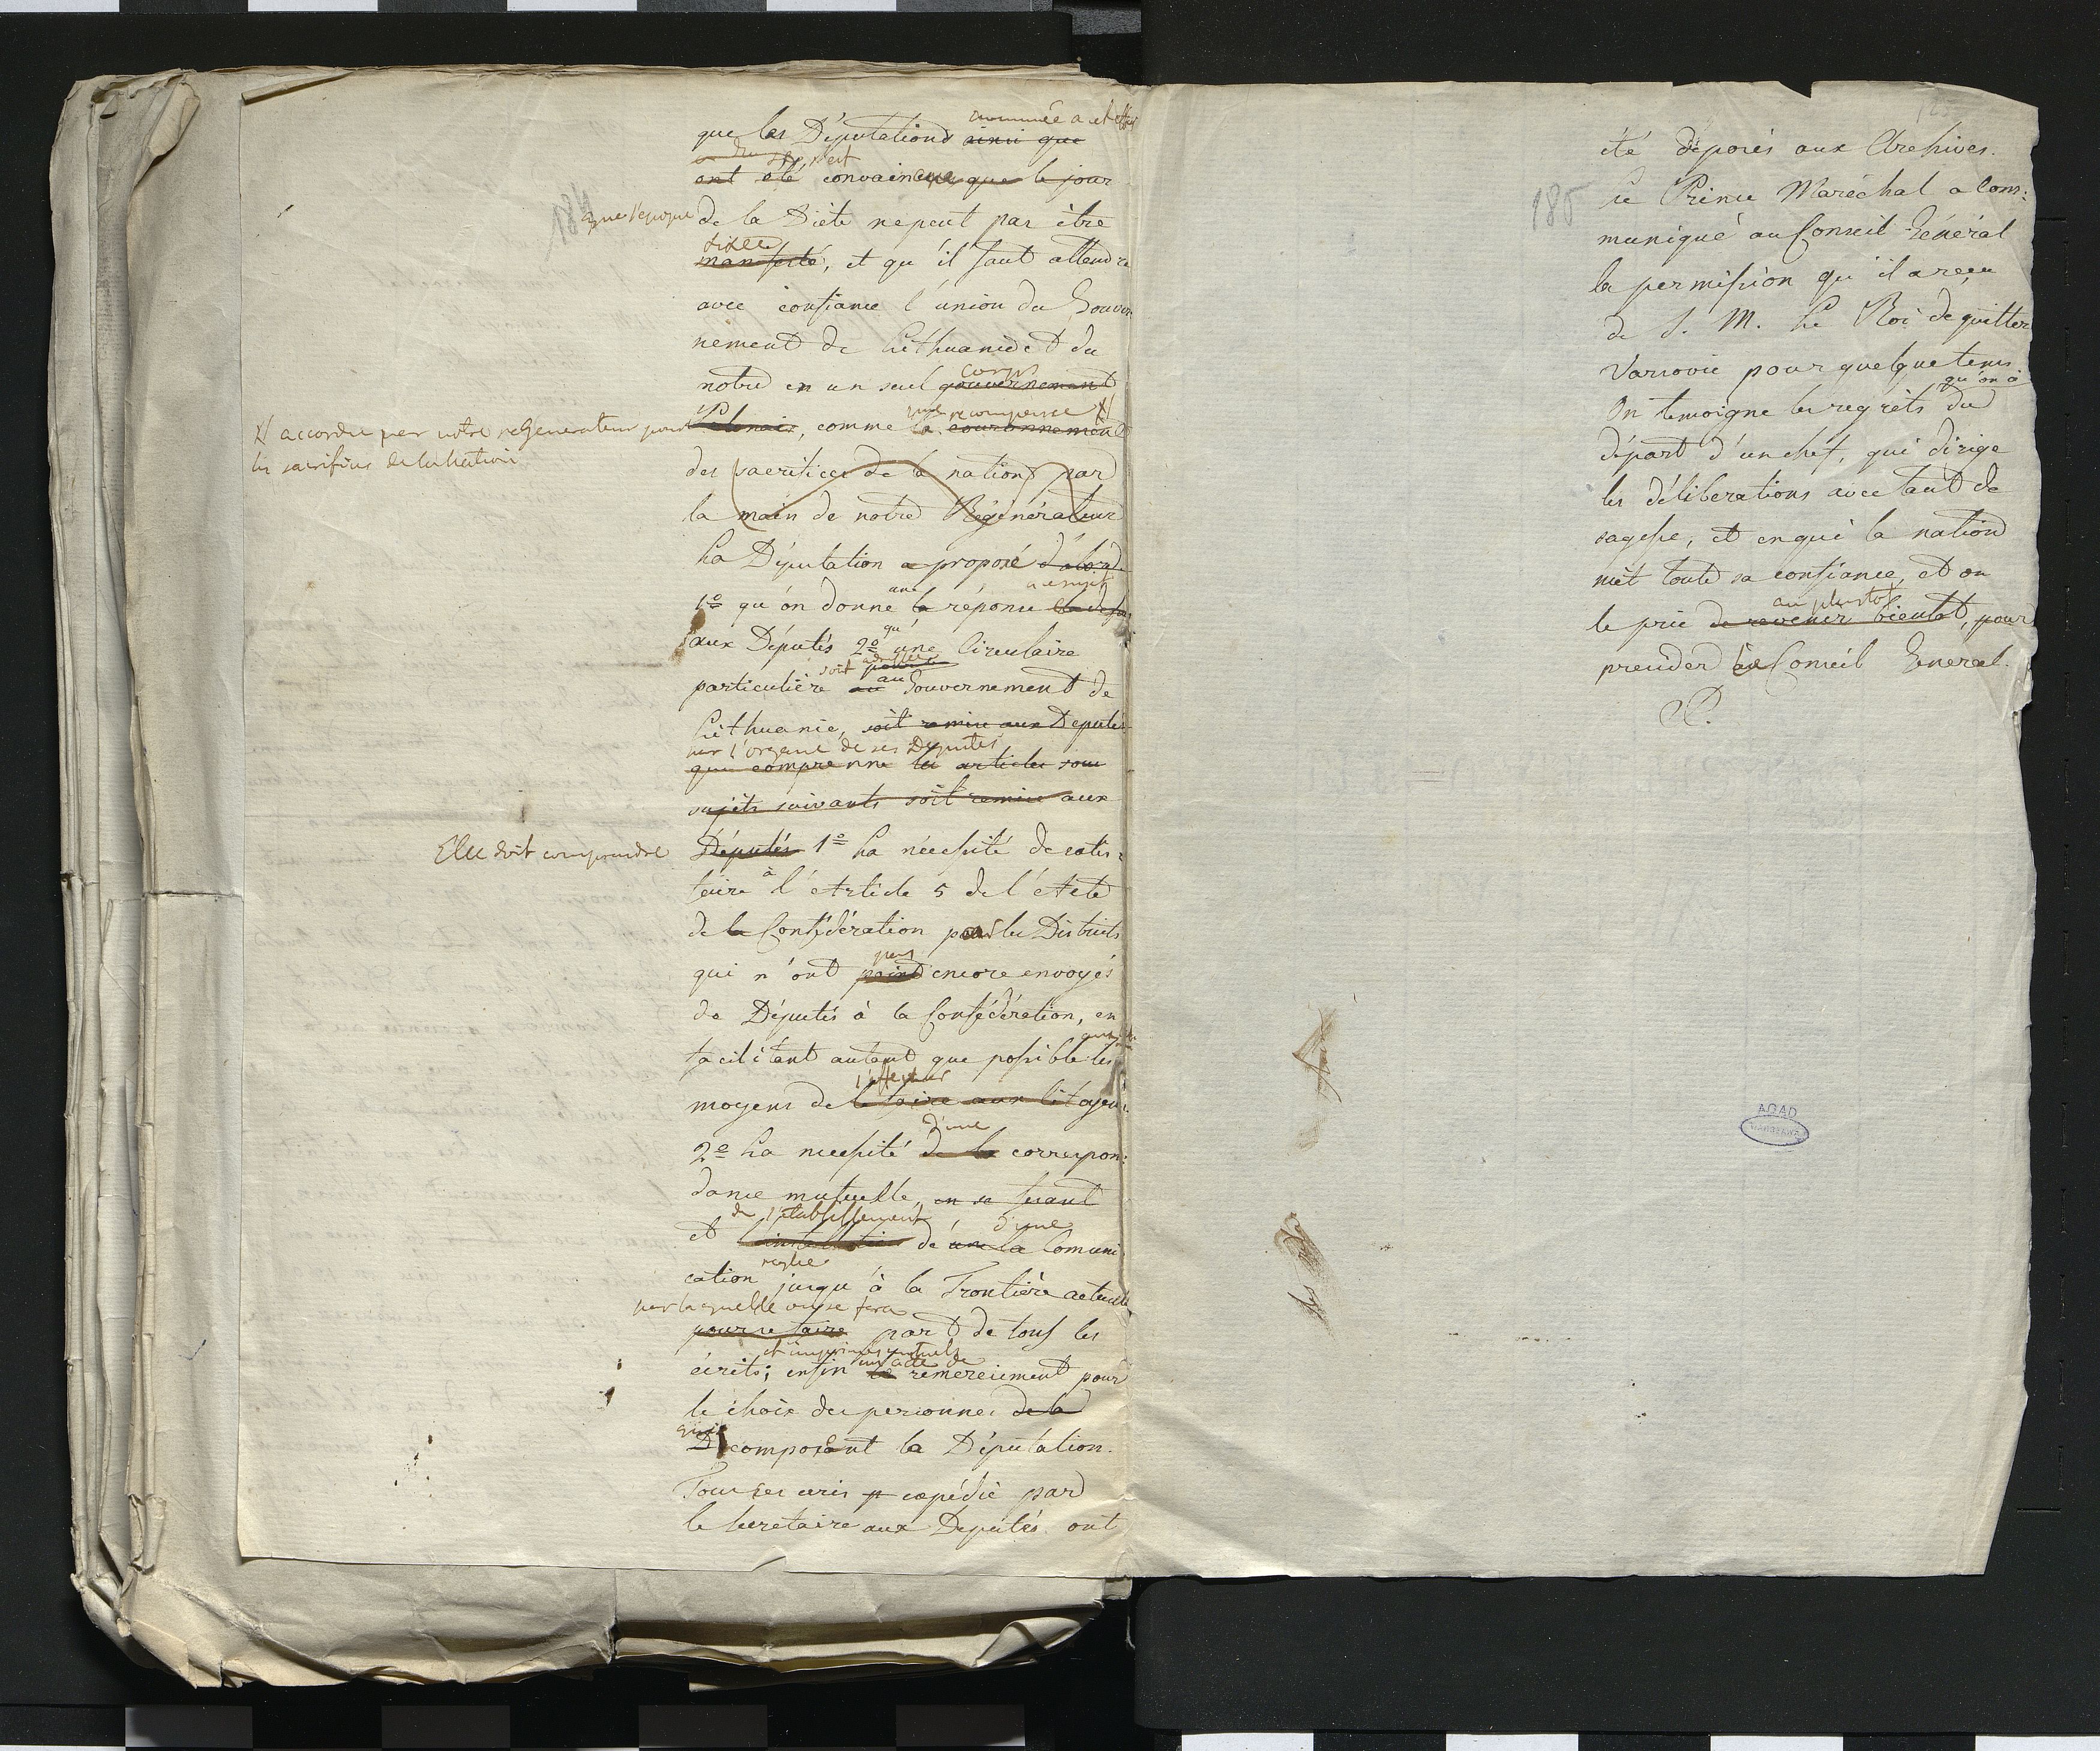 nommée a cet effet
que les Députations ainsi que
s'est
ont été convaincue que le jour
que l'epoque de la Diète ne peut pas être
184
fixée
manifesté, et qu'il faut attendre
avec confiance l'union du Gouver
nement de Lithuanie et du
corps
notre en un seul gouvernement
une recompense X/
Polonais, comme la couronnement
X/ accordée par notre regenerateur pour
les sacrifices de la Nation
des sacrifices de la nation par
la main de notre Régénérateur
La Députation a proposé d'abord
une a ensuite
1º qu'on donne la réponse
aux Députés 2º qu'une Circulaire
soit adressée
particulière au Gouvernement de
Lithuanie, soit remise aux Députés
par l'organe de ses Députés
qui comprenne les articles sous
sujets suivants soit remise aux
Elle doit comprendre
Députés 1º La nécessité de satis:
faire à l'Article 5 de l'Acte
de la Confédération par les Districts
pas
qui n'ont point encore envoyés
de Députés à la Confédération, en
facilitant autant que possible les
l'effectuer
moyens de le faire aux Citoyens.
d'une
2º La necessité de la correspon:
dance mutuelle, en se servant
de l'établissement d'une
et de une la Comuni
reglée
cation jusqu'à la Frontière actuelle
par laquelle on se fera
pour se faire part de tous les
et imprimés actuels
un acte de
écrits; enfin le remerciement pour
le choix des personnes de la
qui
D composent la Députation.
Tous ces ecris expédié par
le secretaire aux Députés ont
185
été déposés aux Archives.
Le Prince Maréchal a Com:
muniqué au Conseil Général
la permission qu'il a reçu
de S. M. Le Roi de quitter
Varsovie pour quelque tems
qu'on a
On temoigne les regrets du
départ d'un chef, qui dirige
les déliberations avec tant de
sagesse, et en qui la nation
met toute sa confiance, et on
au plustot
le prie de revenir bientot, pour
presider le Conseil General.
AGAD
WARSZAWA